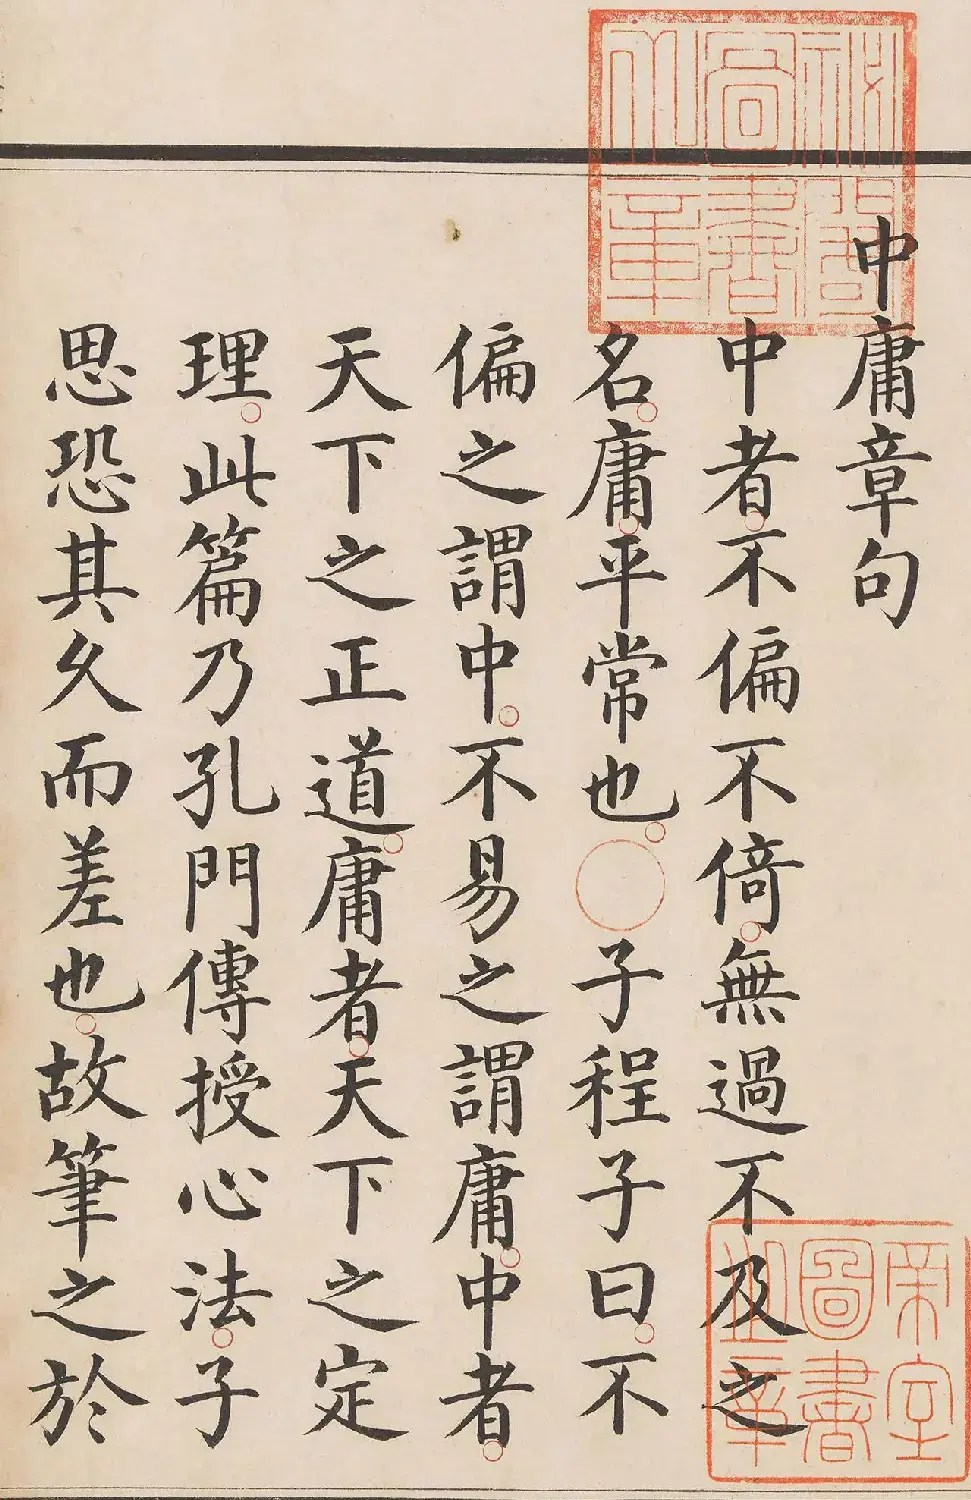 中庸章句
中者不偏不倚無過不及之
名庸平常也○子程子曰不
偏之謂中不易之謂庸中者
天下之正道庸者天下之定
理此篇乃孔門傳授心法子
思恐其久而差也故筆之於
帝室圖書之章